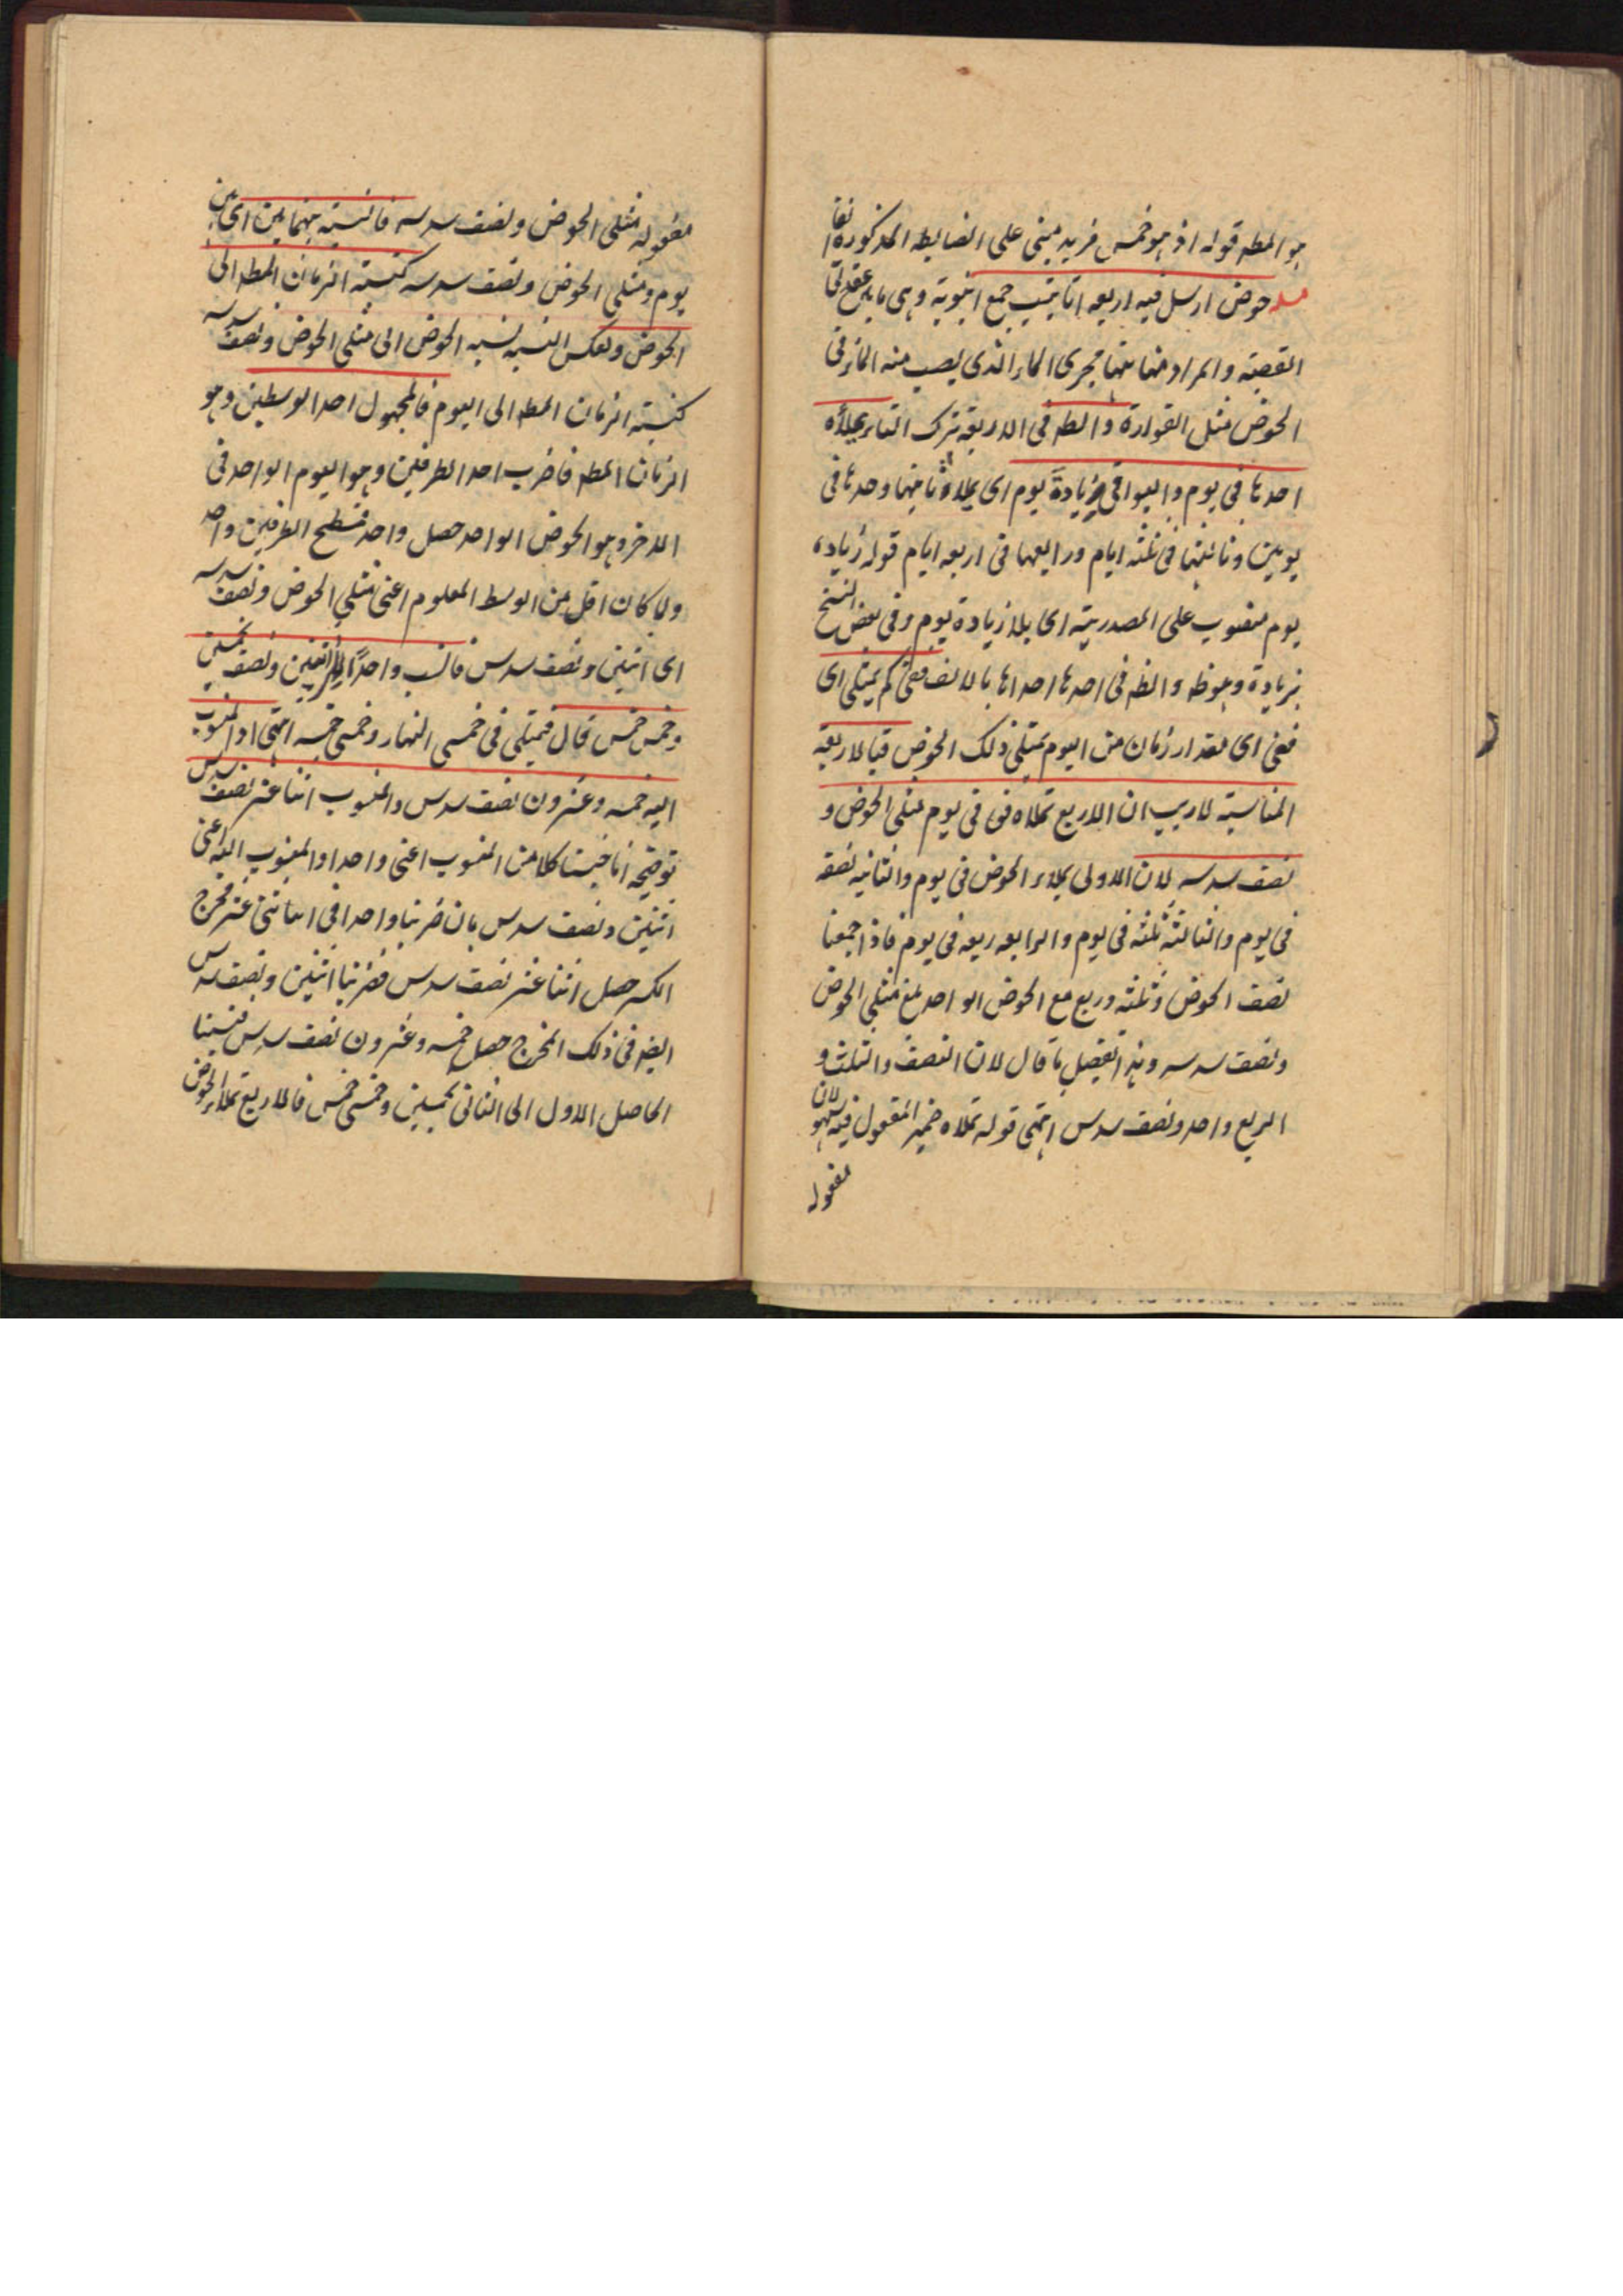 هو المطـ قوله اذ هو خمس فزيد مبنى على الضابطه المذكورة آنفا
مسله حوض ارسل فيه اربعه انابيب جمع انبوبة وهى ما بين عقدتى
القصبة والمراد منها ههنا مجرى الماء الذى يصب منه الماء فى
الحوض مثل الفوارة والظـ فى الاربعة ترك التاء يملأه
احدها فى يوم والبواقى بزيادة يوم اى يملاء ثانيتها وحدها فى
يومين وثالثتها فى ثلثه ايام ورابعها فى اربعه ايام قوله زياده
يوم منصوب على المصدرية اى بلا زيادة يوم وفى بعض النسخ
بزيادة وهو ظـ والظـ فى احدها احداها بالالف ففى كم يمتلى اى
ففى اى مقدار زمان من اليوم يمتلى ذلك الحوض فبالاربعة
المتناسبة لاريب ان الاربع تملاه فى يوم مثلى الحوض و
نصف سدسه لان الاولى يملاء الحوض فى يوم والثانيه نصفه
فى يوم والثالثة ثلثه فى يوم والرابعه ربعه فى يوم فاذا جمعنا
نصف الحوض وثلثه وربع مع الحوض الواحد بلغ مثلى الحوض
ونصف سدسه وهذا تفصيل ما قال لان النصف والثلث و
الربع واحد ونصف سدس انتهى قوله تملاه ضمير المفعول فيه سهو لان
مفعوله
مفعوله مثلى الحوض ونصف سدسه فالنسبة بينهما اى بين
يوم ومثلى الحوض ونصف سدسه كنسبة الزمان المطـ الى
الحوض وبعكس النسبه نسبه الحوض الى مثلى الحوض ونصف سدسه
كنسبة الزمان المطـ الى اليوم فالمجهول احد الوسطين وهو
الزمان المطـ فاضرب احد الطرفين وهو اليوم الواحد فى
الاخر وهو الحوض الواحد حصل واحد فسطح الطرفين واحد
ولما كان اقل من الوسط المعلوم اعنى مثلى الحوض ونصف سدسه
اى اثنين ونصف سدس فانسب واحدًا الى اثنين ونصف بخمسين
وخمس خمس قال فيمتلى فى خمسى النهار وخمسى خمسه انتهى اذ المنسوب
اليه خمسه وعشرون نصف سدس والمنسوب اثنا عشر نصف سدس
توضيحه انا جنسنا كلا من المنسوب اعنى واحدا والمنسوب اليه اعنى
اثنين ونصف سدس بان ضربنا واحدا فى اثنى عشر مخرج
الكسر حصل اثنا عشر نصف سدس فضربنا اثنين ونصف سدس
ايضـ فى ذلك المخرج حصل خمسه وعشرون نصف سدس فنسبنا
الحاصل الاول الى الثانى بخمسين وخمسى خمس فالاربع تملاء الحوض